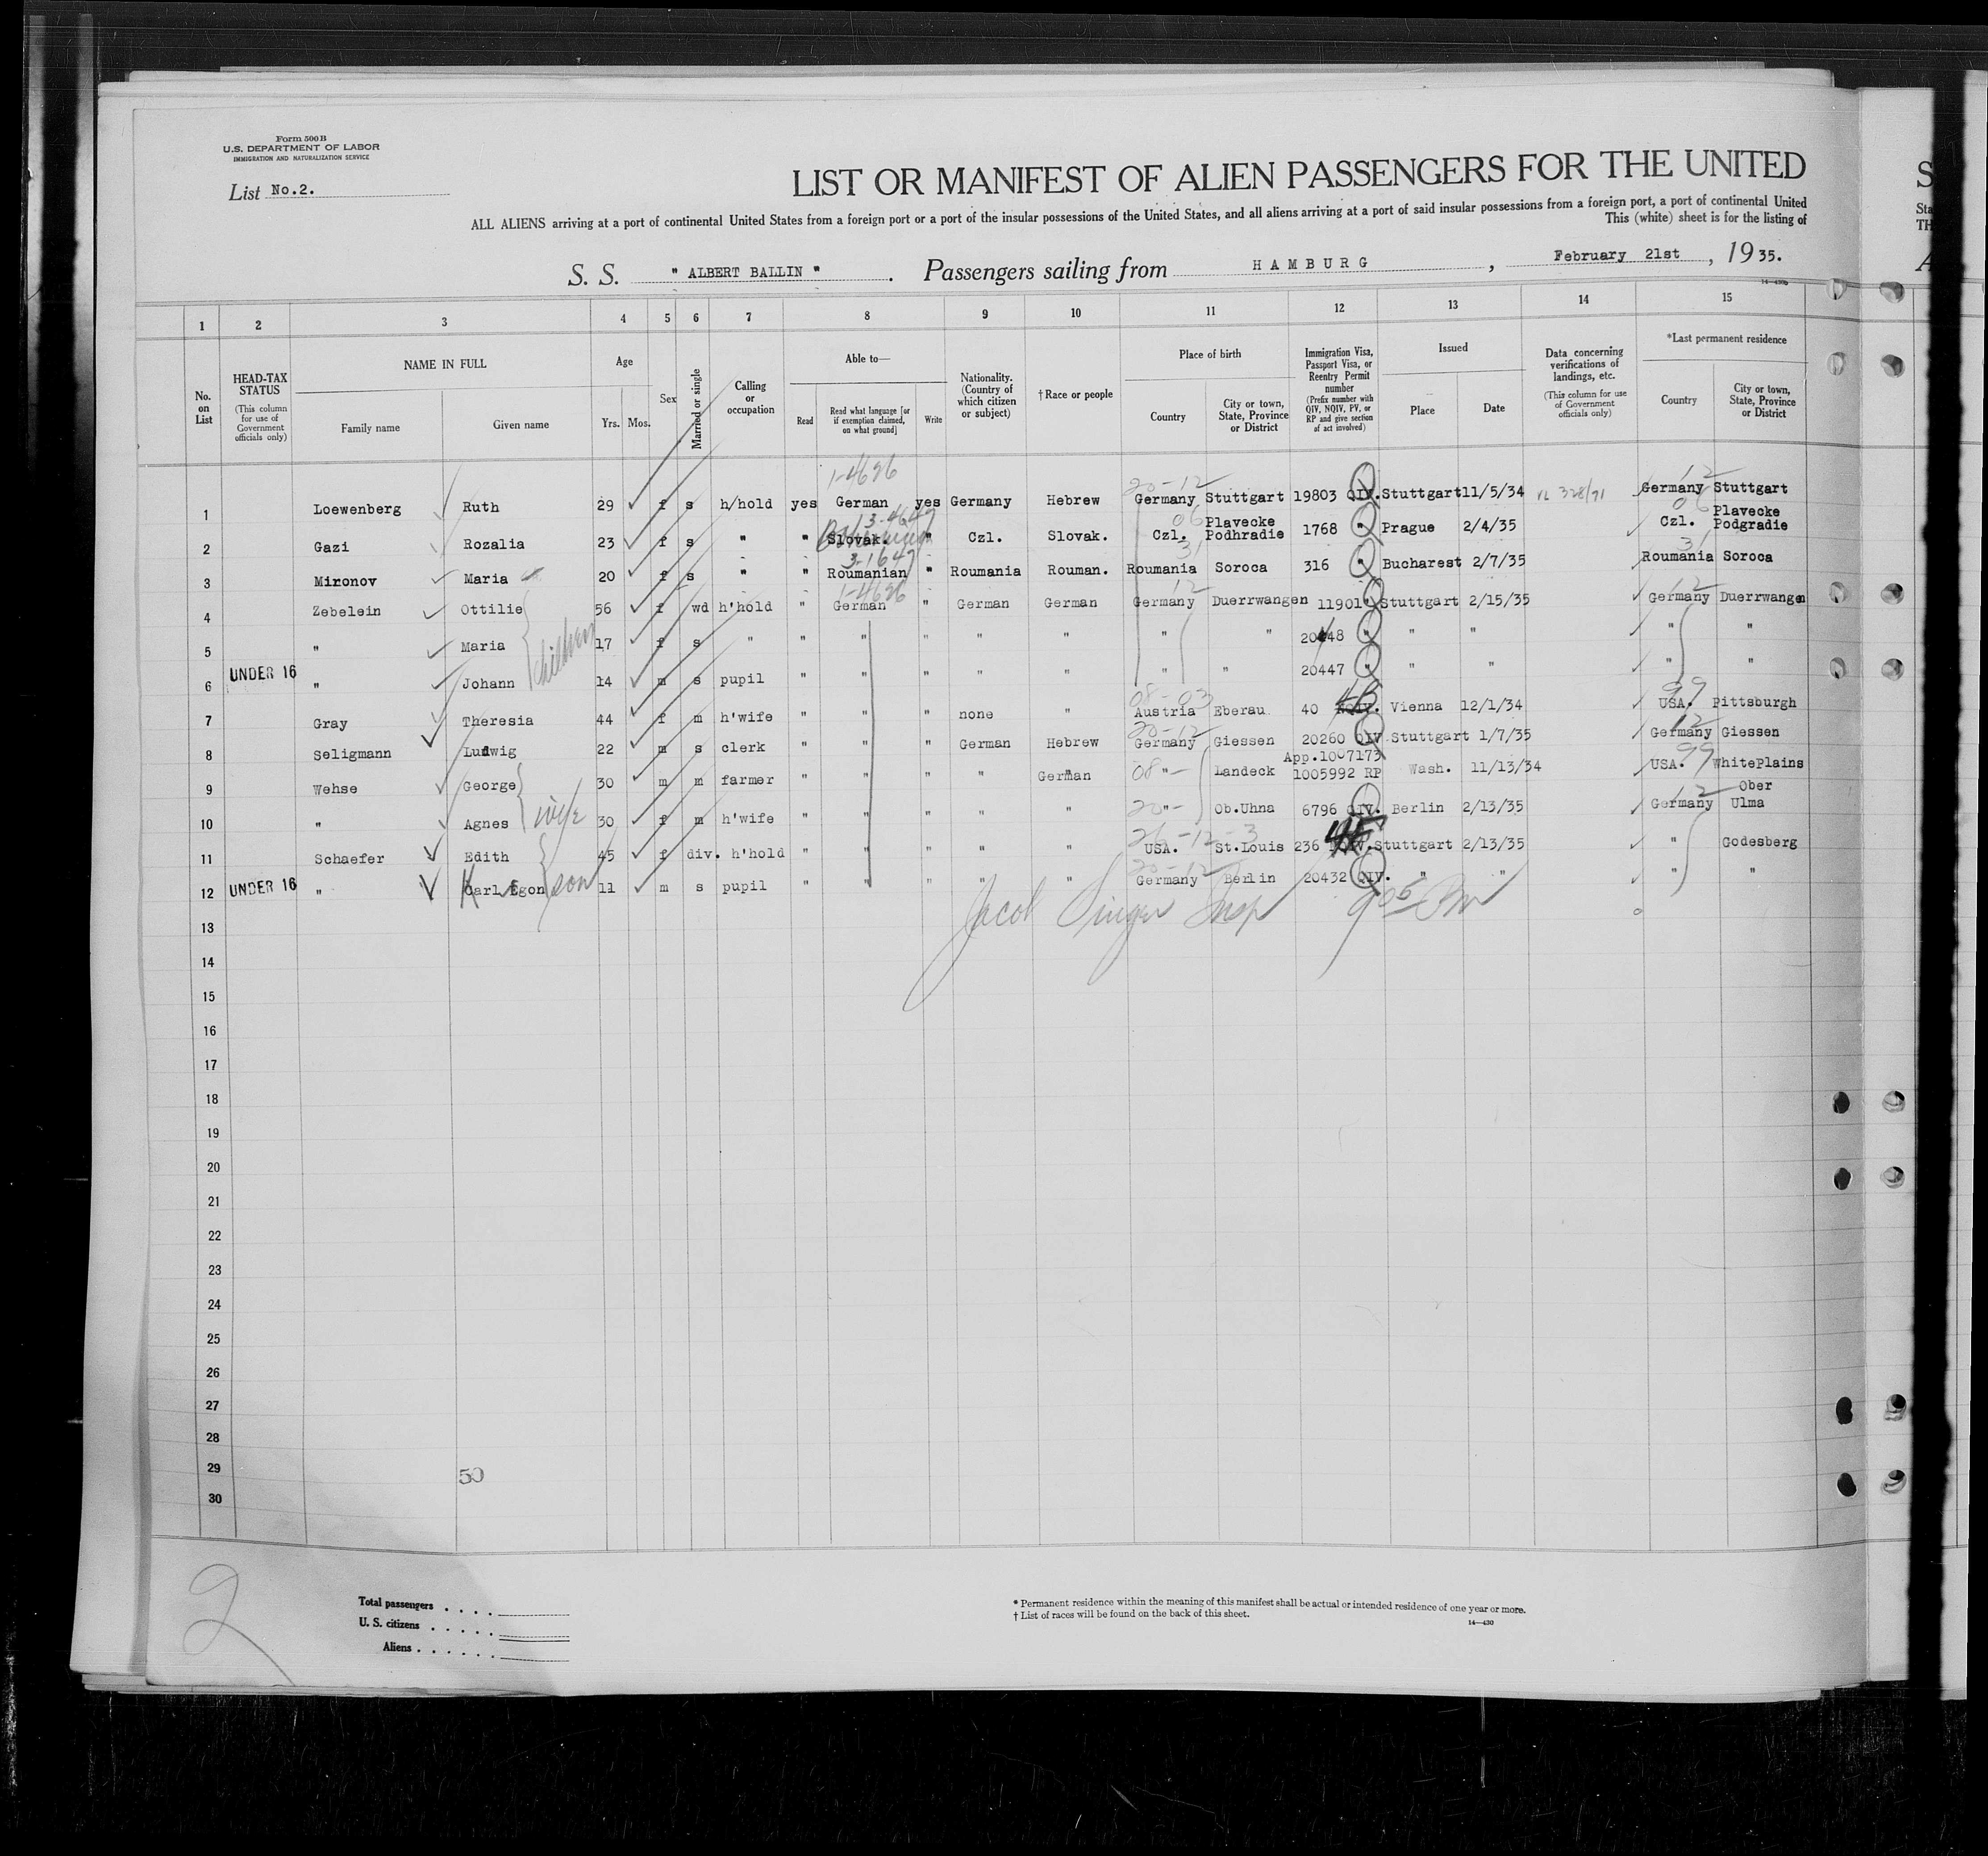 Form 500 B
U.S. DEPARTMENT OF LABOR
IMMIGRATION AND NATURALIZATION SERVICE
List No.2.
LIST OR MANIFEST OF ALIEN PASSENGERS FOR THE UNITED
ALL ALIENS arriving at a port of continental United States from a foreign port or a port of the insular possessions of the United States, and all aliens arriving at a port of said insular possessions from a foreign port, a port of continental United
This (white) sheet is for the listing of
S. S. " ALBERT BALLIN " . Passengers sailing from HAMBURG , February 21st , 1935.
14—430b
1 2 3 4 5 6 7 8 9 10 11 12 13 14 15
No. on List
HEAD-TAX STATUS (This column for use of Government officials only)
NAME IN FULL Family name Given name
Age Yrs. Mos.
Sex
Married or single
Calling or occupation
Able to— Read Read what language [or if exemption claimed, on what ground] Write
Nationality. (Country of which citizen or subject)
†Race or people
Place of birth Country City or town, State, Province or District
Immigration Visa, Passport Visa, or Reentry Permit number (Prefix number with QIV, NQIV, PV, or RP and give section of act involved)
Issued Place Date
Data concerning verifications of landings, etc. (This column for use of Government officials only)
*Last permanent residence Country City or town, State, Province or District
1-4696 20-12 12
1 Loewenberg Ruth 29 f s h/hold yes German yes Germany Hebrew Germany Stuttgart 19803 QIV. Stuttgart 11/5/34 Germany Stuttgart
06 06
2 Gazi Rozalia 23 f s " " Slovak. " Czl. Slovak. Czl. Plavecke Podhradie 1768 " Prague 2/4/35 Czl. Plavecke Podgradie
31 31
3 Mironov Maria 20 f s " " Roumanian " Roumania Rouman. Roumania Soroca 316 " Bucharest 2/7/35 Roumania Soroca
1-4696 12 12
4 Zebelein Ottilie 56 f wd h'hold " German " German German Germany Duerrwangen 11901 " Stuttgart 2/15/35 Germany Duerrwangen
children
5 " Maria 17 f s " " " " " " " " 20448 " " " " "
UNDER 16
6 " Johann 14 m s pupil " " " " " " " 20447 " " " " "
08-03 99
7 Gray Theresia 44 f m h'wife " " " none " Austria Eberau 40 NQIV. Vienna 12/1/34 USA. Pittsburgh
20-12 12
8 Seligmann Ludwig 22 m s clerk " " " German Hebrew Germany Giessen 20260 QIV Stuttgart 1/7/35 Germany Giessen
App.1007173
08 99
9 Wehse George 30 m m farmer " " " " German " Landeck 1005992 RP Wash. 11/13/34 USA. WhitePlains
wife 20 12
10 " Agnes 30 f m h'wife " " " " " " Ob.Uhna 6796 QIV. Berlin 2/13/35 Germany Ober Ulma
26-12-3
11 Schaefer Edith 45 f div. h'hold " " " " " USA. St.Louis 236 Stuttgart 2/13/35 " Godesberg
20-12
12 UNDER 16 " Carl Egon son 11 m s pupil " " " " " Germany Berlin 20432 QIV. " " " "
K
Jacob Singer Insp
13
14
15
16
17
18
19
20
21
22
23
24
25
26
27
28
29
50
30
2
Total passengers . . . .
U. S. citizens . . . . .
Aliens . . . . . .
* Permanent residence within the meaning of this manifest shall be actual or intended residence of one year or more.
† List of races will be found on the back of this sheet.
14—430